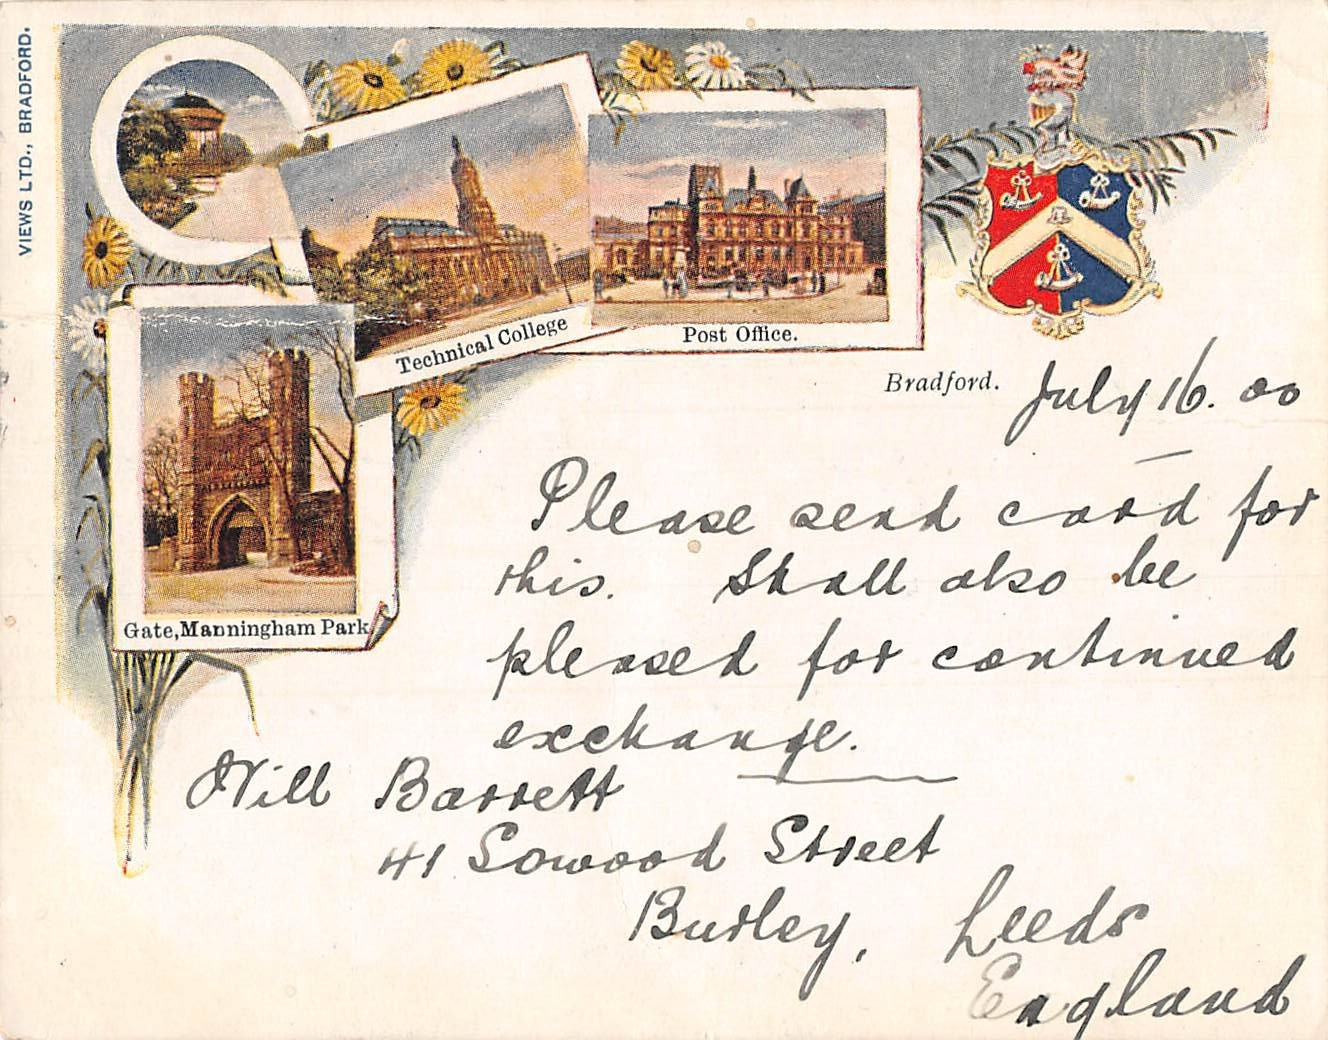 VIEWS LTD., BRADFORD.
Technical College
Post Office.
Gate, Manningham Park
Bradford. July 16. 00
Please send card for
this. Shall also be
pleased for continued
exchange.
Will Barrett
41 Sowood Street
Burley, Leeds
England